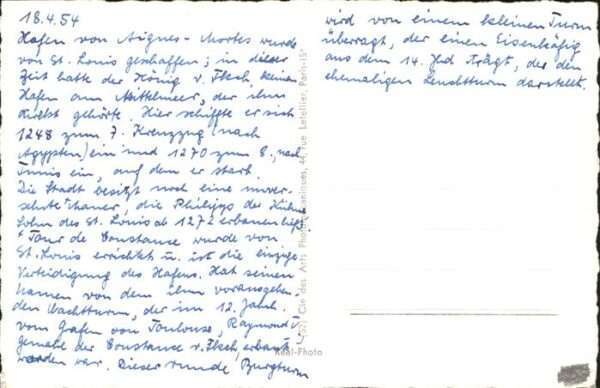 18.4.54
Hafen von Aigues-Mortes wurde
von St. Louis geschaffen; in dieser
Zeit hatte der König v. Fksch. keinen
Hafen am Mittelmeer, der ihm
selbst gehörte. Hier schiffte er sich
1248 zum 7. Kreuzzug (nach
Ägypten) ein und 1270 zum 8., nach
Tunis ein, auf dem er starb.
Die Stadt besitzt noch eine unver-
sehrte Mauer, die Philipps der Kühne
Sohn des St. Louis ab 1272 erbauen ließ.
Tour de Constance wurde von
St. Louis errichtet u. ist die einzige
Verteidigung des Hafens. Hat seinen
Namen von dem ihm vorausgehen-
den Wachtturm, der im 12. Jahrh.
vom Grafen von Toulouse, Raymond V
Gemahl der Constance v. Fksch, erbaut
worden war. Dieser runde Burgturm
wird von einem kleinen Turm
überragt, der einen Eisenkäfig
aus dem 14. Jhd trägt, der den
ehemaligen Leuchtturm darstellt.
Cie des Arts Photomécaniques, 44, rue Letellier, Paris-15e
Real-Photo